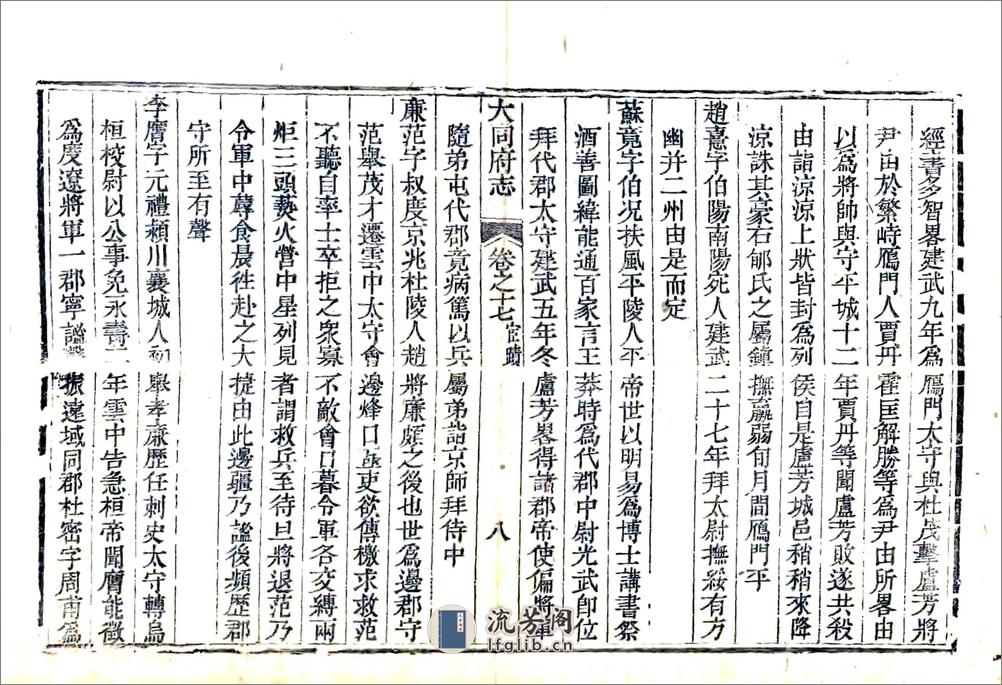 經書多智畧建武九年爲鴈門太守與杜茂擊盧芳將
尹由於繁峙鴈門人賈丹霍匡解勝等爲尹由所畧由
以爲將帥與守平城十二年賈丹等聞盧芳敗遂共殺
由詣涼涼上狀皆封爲列侯自是盧芳城邑稍稍來降
涼誅其豪右郇氏之屬鎮撫羸弱旬月間鴈門平
趙憙字伯陽南陽宛人建武二十七年拜太尉撫綏有方
幽并二州由是而定
蘇竟字伯况扶風平陵人平帝世以明易爲博士講書祭
酒善圖緯能通百家言王莽時爲代郡中尉光武卽位
拜代郡太守建武五年冬盧芳畧得諸郡帝使偏將軍
大同府志 卷之十七 宦蹟 八
隨弟屯代郡竟病篤以兵屬弟詣京師拜侍中
廉范字叔度京兆杜陵人趙將廉頗之後也世爲邊郡守
范舉茂才遷雲中太守會邊烽日亟吏欲傳檄求救范
不聽自率士卒拒之衆寡不敵會日暮令軍各交縛兩
炬三頭爇火營中星列見者謂救兵至待旦將退范乃
令軍中蓐食晨徃赴之大捷由此邊疆乃謐後頻歷郡
守所至有聲
李膺字元禮潁川襄城人初舉孝廉歷任刺史太守轉烏
桓校尉以公事免永壽二年雲中告急桓帝聞膺能徵
爲度遼將軍一郡寧謐聲振遠域同郡杜密字周甫爲
流芳閣
lfglib.cn